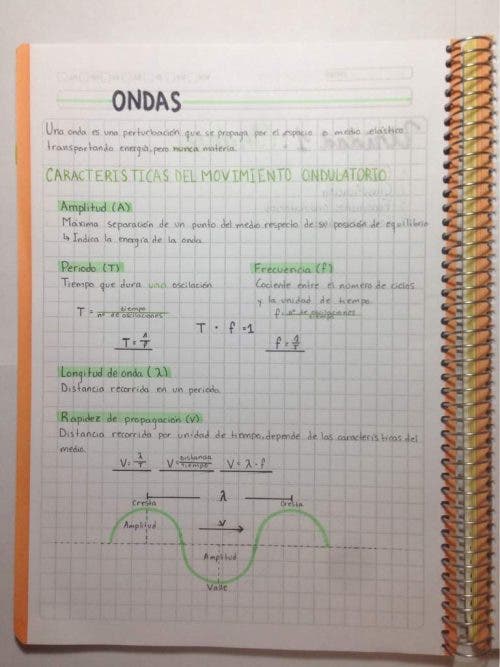 ONDAS
Una onda es una perturbación que se propaga por el espacio o medio elástico
transportando energía, pero nunca materia.
CARACTERISTICAS DEL MOVIMIENTO ONDULATORIO
Amplitud (A)
Máxima separación de un punto del medio respecto de su posición de equilibrio
↳ Indica la energía de la onda.
Periodo (T)
Tiempo que dura una oscilación.
T = tiempo / nº de oscilaciones
T = 1/f
T · f = 1
Frecuencia (f)
Cociente entre el número de ciclos
y la unidad de tiempo.
f = nº de oscilaciones
f = 1/T
Longitud de onda (λ)
Distancia recorrida en un periodo.
Rapidez de propagación (v)
Distancia recorrida por unidad de tiempo, depende de las características del
medio.
V = λ/T V = Distancia/Tiempo V = λ · f
λ
Cresta Cresta
Amplitud v
Amplitud
Valle